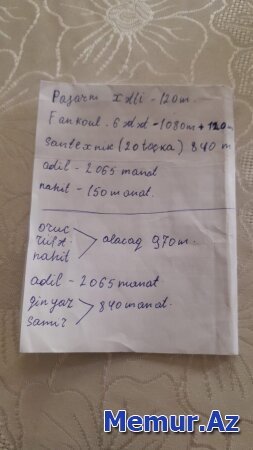 Pajarnı xətti - 120 m.
Fankoul - 6 əd - 1080m + 120m
Santexnik (20 toçka) 840 m
adil - 2065 manat
nahit - 150 manat.
oruc
rüst.
nahit
alacaq 970 m.
adil - 2065 manat
Samir
840 manat.
Memur.Az